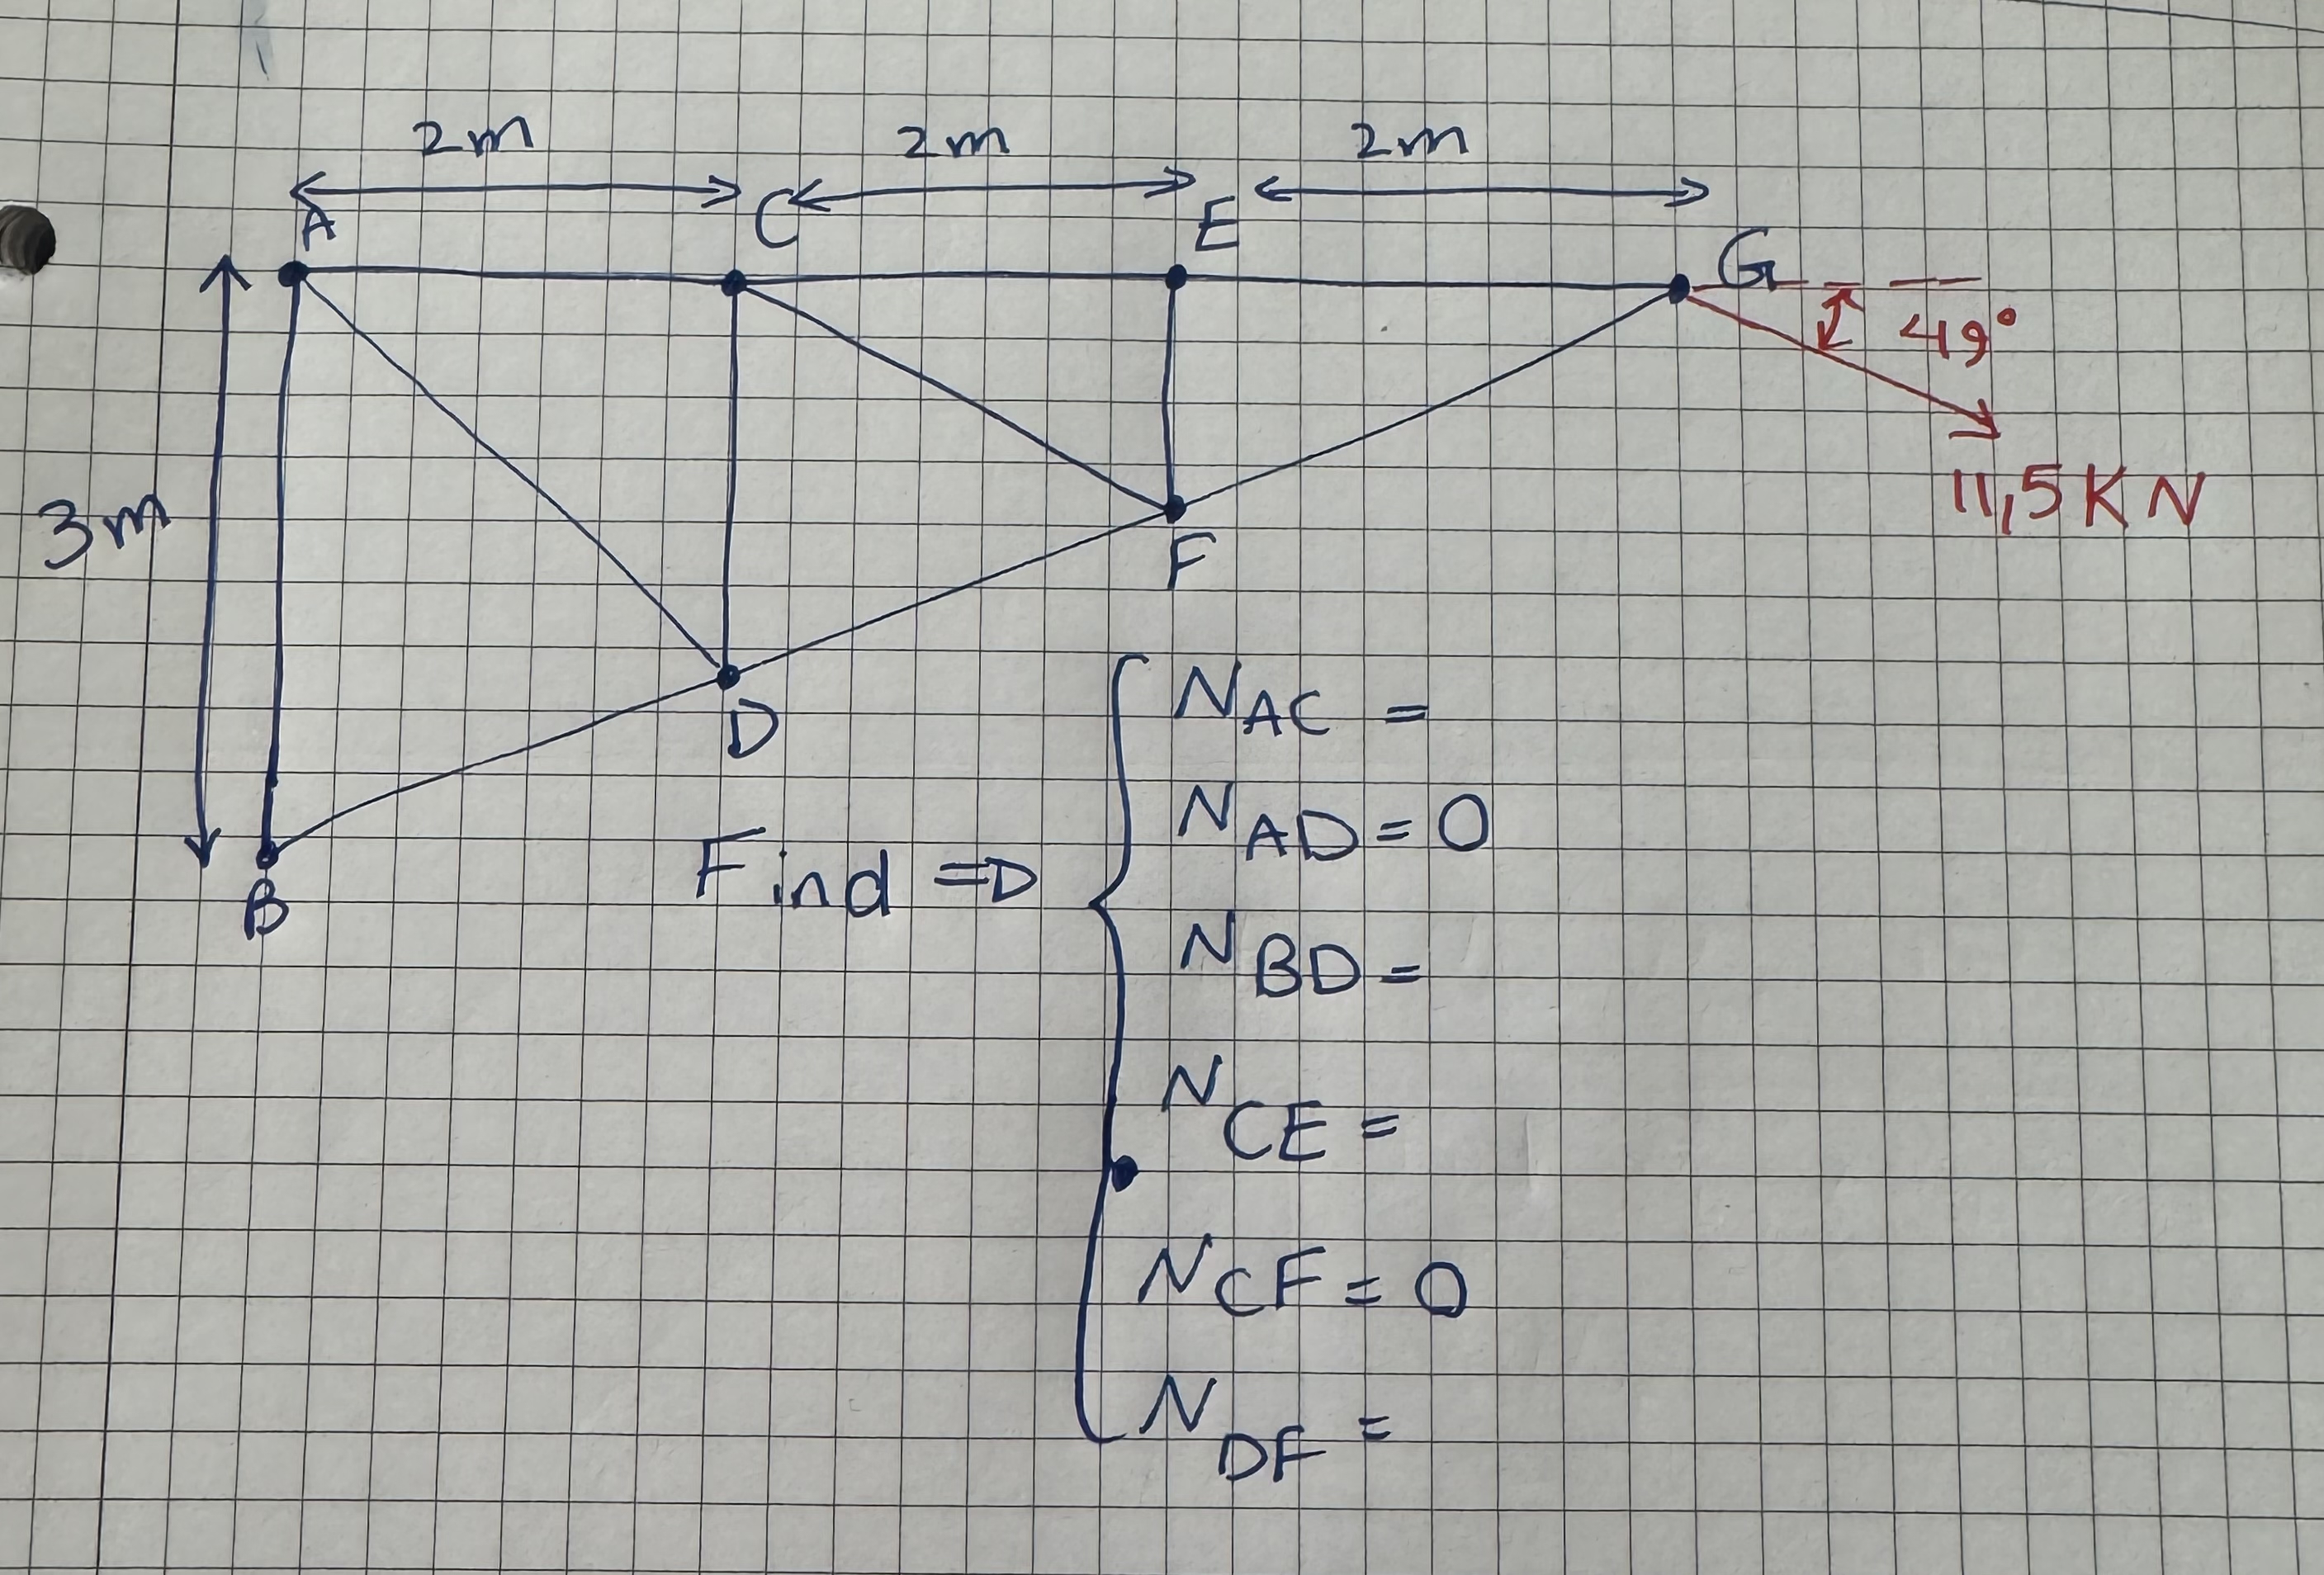 2m 2m 2m
A C E G
49°
11,5 KN
3m
F
D
B
Find =D
N AC =
N AD = 0
N BD =
N CE =
N CF = 0
N DF =